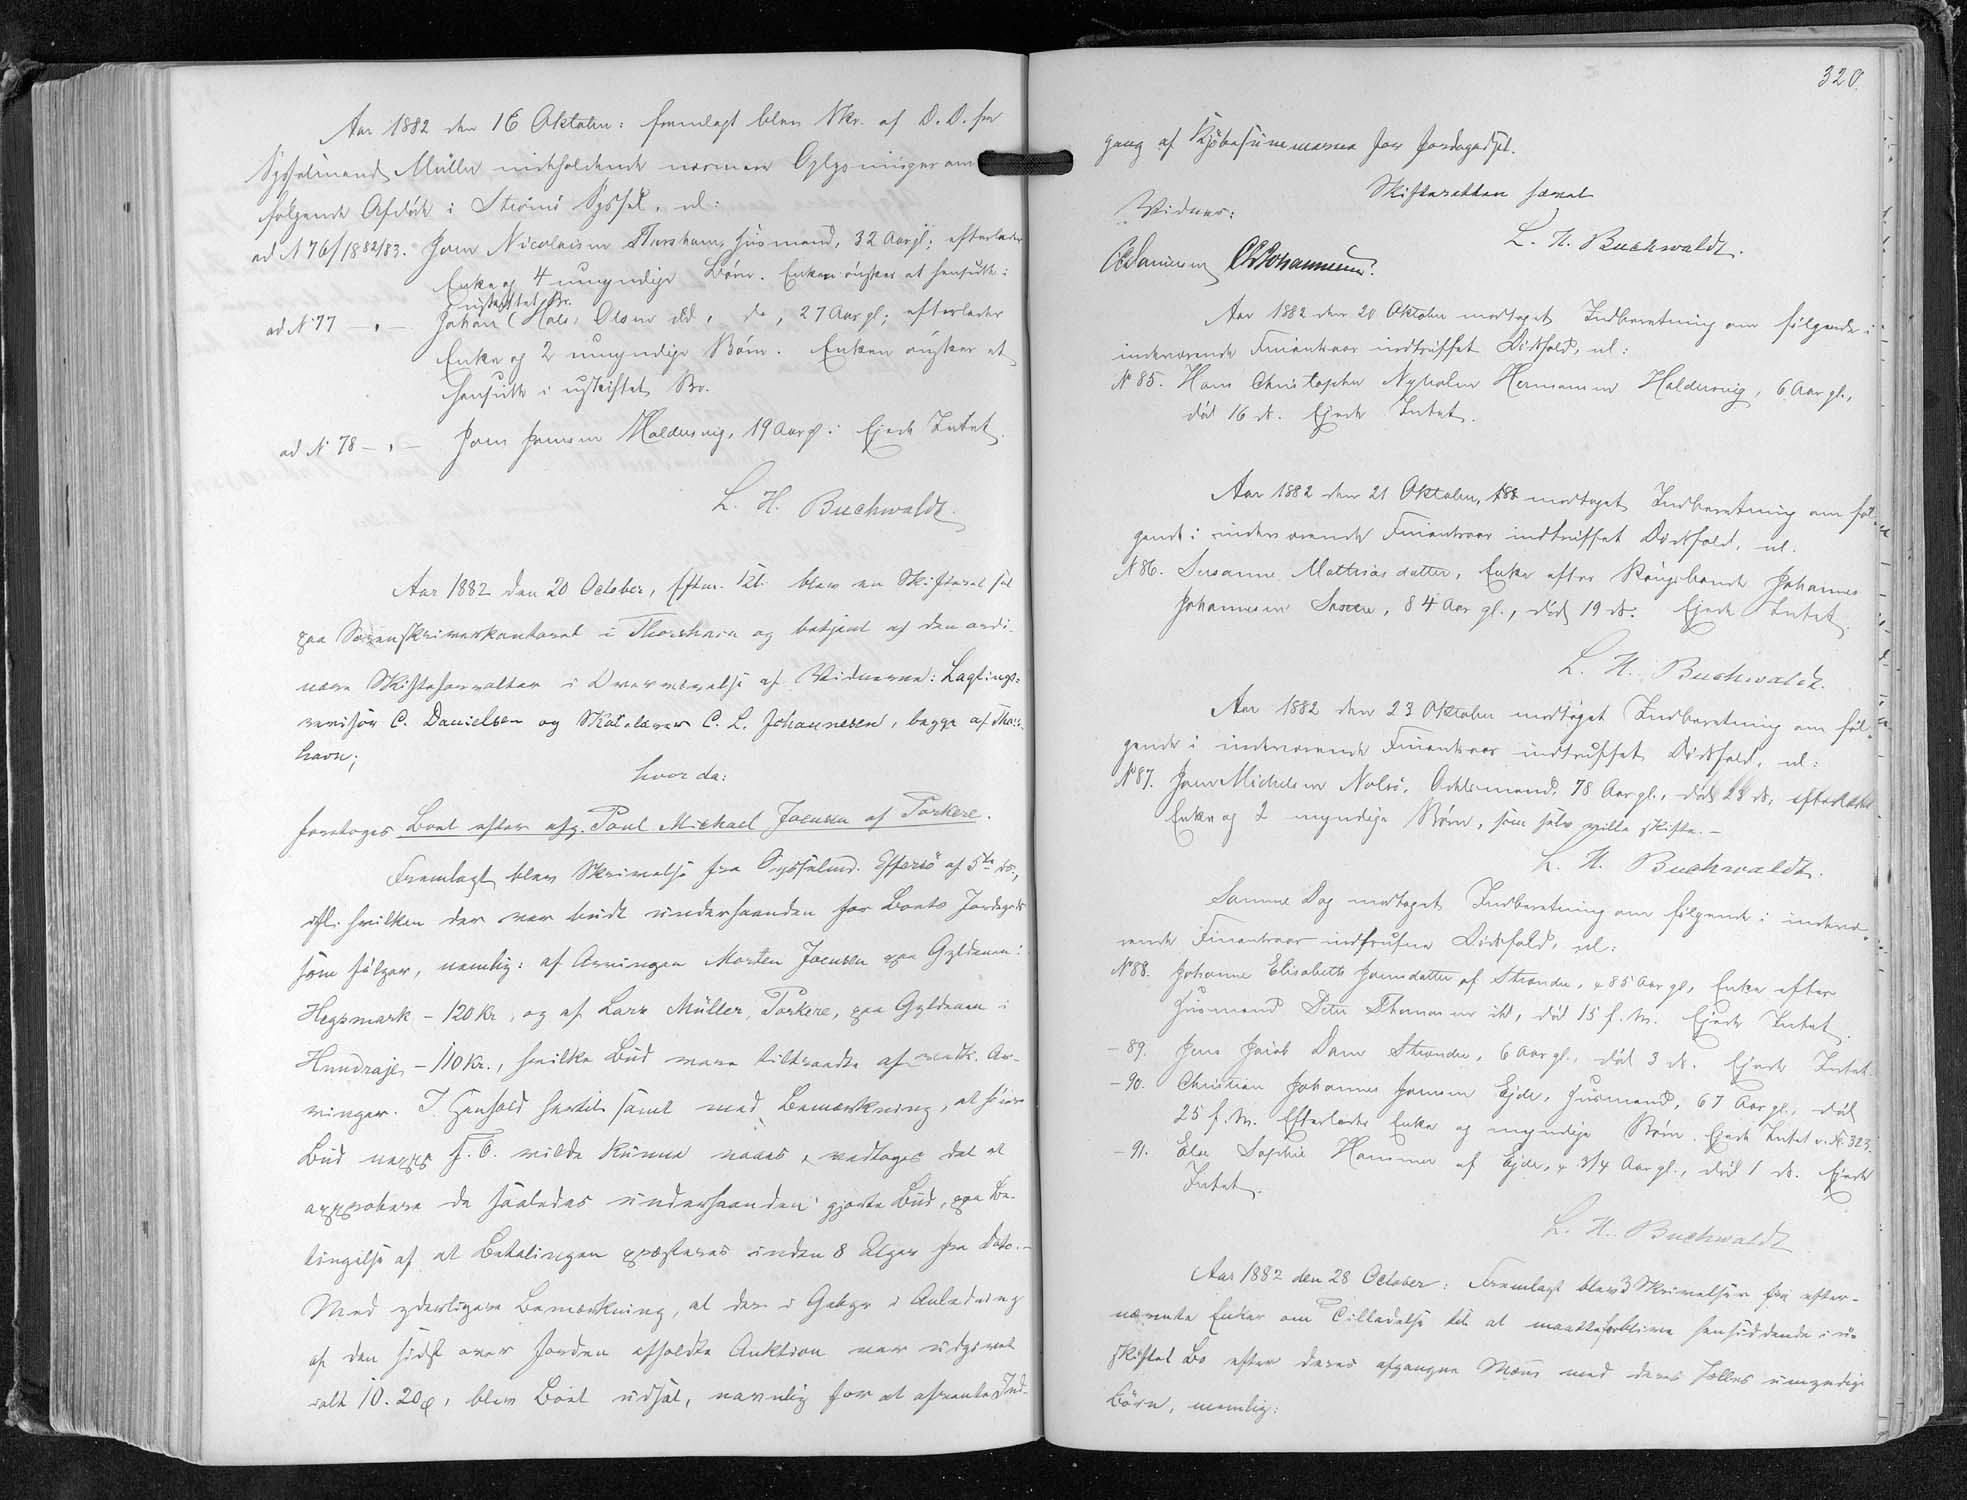 Aar 1882 den 16 Oktober: fremlagt blev Skr. af D. D. fra
Sysselmand Müller indeholdende nærmere Oplysninger om
følgende Afdøde i Strømø Syssel, nl:
ad N 76/1882/83. Joen Nicolaisen Thorshavn, Husmand, 32 Aar gl; efterlader
Enke og 4 umyndige Børn. Enken ønsker at hensidde i
uskiftet Bo.
ad N 77 — " — Johan Olsen ibd, do, 27 Aar gl; efterlader
Enke og 2 umyndige Børn. Enken ønsker at
hensidde i uskiftet Bo.
ad N 78 — " — Joen Joensen Haldersvig, 19 Aar gl: Ejede Intet.
L. H. Buchwaldt.
Aar 1882 den 20 October, Efterm. blev en Skifteret sat
paa Sorenskriverkontoret i Thorshavn og betjent af den ordi-
nære Skifteforvalter i Overværelse af Vidnerne: Lagtings-
revisor C. Danielsen og Skolelærer C. L. Johannesen, begge af Thors-
havn;
hvor da:
foretoges Boet efter afg. Poul Michael Joensen af Porkere.
Fremlagt blev Skrivelse fra Sysselmd. Effersø af 5te ds.,
ifl. hvilken der var budt underhaanden for Boets Jordegods
som følger, nemlig: af Arvingen Morten Joensen paa Gyldenen i
Hegsmark - 120 Kr, og af Lars Müller, Porkere, paa Gyldenen i
- 110 Kr., hvilke Bud vare tiltraadte af vedk. Ar-
vinger. I Henhold hertil samt med Bemærkning, at høiere
Bud neppe f. T. vilde kunne naaes, vedtoges det at
approbere de saaledes underhaanden gjorte Bud, paa Be-
tingelse af at Betalingen præsteres inden 8 Uger fra Dato.-
Med yderligere Bemærkning, at der i Gebyr i Anledning
af den sidst over Jorden afholdte Auktion var udgivet
ialt 10. 20 ø, blev Boet udsat, navnlig for at afvente Ind-
320.
gang af Kjøbesummerne for Jordegodset.
Skifteretten hævet
Vidner:
L. H. Buchwaldt.
C Danielsen CLJohannesen.
Aar 1882 den 20 Oktober modtaget Indberetning om følgende i
indeværende Finantsaar indtruffet Dødsfald, nl:
N 85. Hans Christopher Nyholm Hermansen Haldersvig, 6 Aar gl.,
død 16 ds. Ejede Intet.
Aar 1882 den 21 Oktober, modtaget Indberetning om føl-
gende i indeværende Finantsaar indtruffet Dødsfald, nl.
N 86. Susanne Mathiasdatter, Enke efter Kongsbonde Johannes
Johannesen Saxen, 84 Aar gl., død 19 ds. Ejede Intet.
L. H. Buchwaldt.
Aar 1882 den 23 Oktober modtaget Indberetning om føl-
gende i indeværende Finantsaar indtruffet Dødsfald, nl:
N 87. Joen Michelsen Nolsø, Odelsmand, 78 Aar gl., død ds, efterlader
Enke og 2 myndige Børn, som selv ville skifte. -
L. H. Buchwaldt.
Samme Dag modtaget Indberetning om følgende i indevæ-
rende Finantsaar indtrufne Dødsfald, nl:
N 88. Johanne Elisabeth Joensdatter af Strænder, 85 Aar gl, Enke efter
Husmand Peter Thomasen ibd, død 15 f. M. Ejede Intet.
- 89. Jens Jacob Dam Strænder, 6 Aar gl., død 3 ds. Ejede Intet.
- 90. Christian Johannes Joensen Ejde, Husmand, 67 Aar gl., død
25 f. M. Efterlader Enke og myndige Børn. Ejede Intet v. N. 323.
- 91. Else Sophie Hammer af Ejde, 3/4 Aar gl., død 1 ds. Ejede
Intet.
L. H. Buchwaldt
Aar 1882 den 28 October: Fremlagt blev 3 Skrivelser fra efter-
nævnte Enker om Tilladelse til at maatte forblive hensiddende i u-
skiftet Bo efter deres afgangne Mænd med deres fælles umyndige
Børn, nemlig: